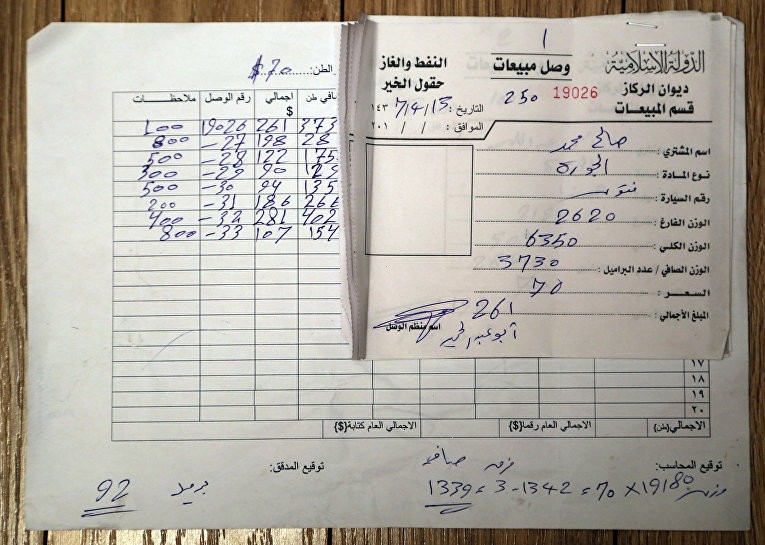 الدولة الإسلامية
ديوان الركاز
قسم المبيعات
1
وصل مبيعات
19026
250
النفط والغاز
حقول الخير
التاريخ : 7/4/15 ١٤٣
الموافق : / / ٢٠١
اسم المشتري : صالح محمد
نوع المادة :
رقم السيارة :
الوزن الفارغ : 2620
الوزن الكلي : 6350
الوزن الصافي / عدد البراميل : 3730
السعر : 70
المبلغ الأجمالي : 261
اسم منظم الوصل
الطن: $70
ملاحظات رقم الوصل اجمالي $ صافي طن
100 19026 261 373
800 -27 198 28
500 -28 122 175
300 -29 90
500 -30 94 135
200 -31 186 266
400 -32 281 402
800 -33 107 154
١٧
١٨
١٩
٢٠
الاجمالي(طن) الاجمالي العام رقما{$} الاجمالي العام كتابة{$}
توقيع المحاسب: توقيع المدقق:
1339 = 3 - 1342 = 70 × 19180
92